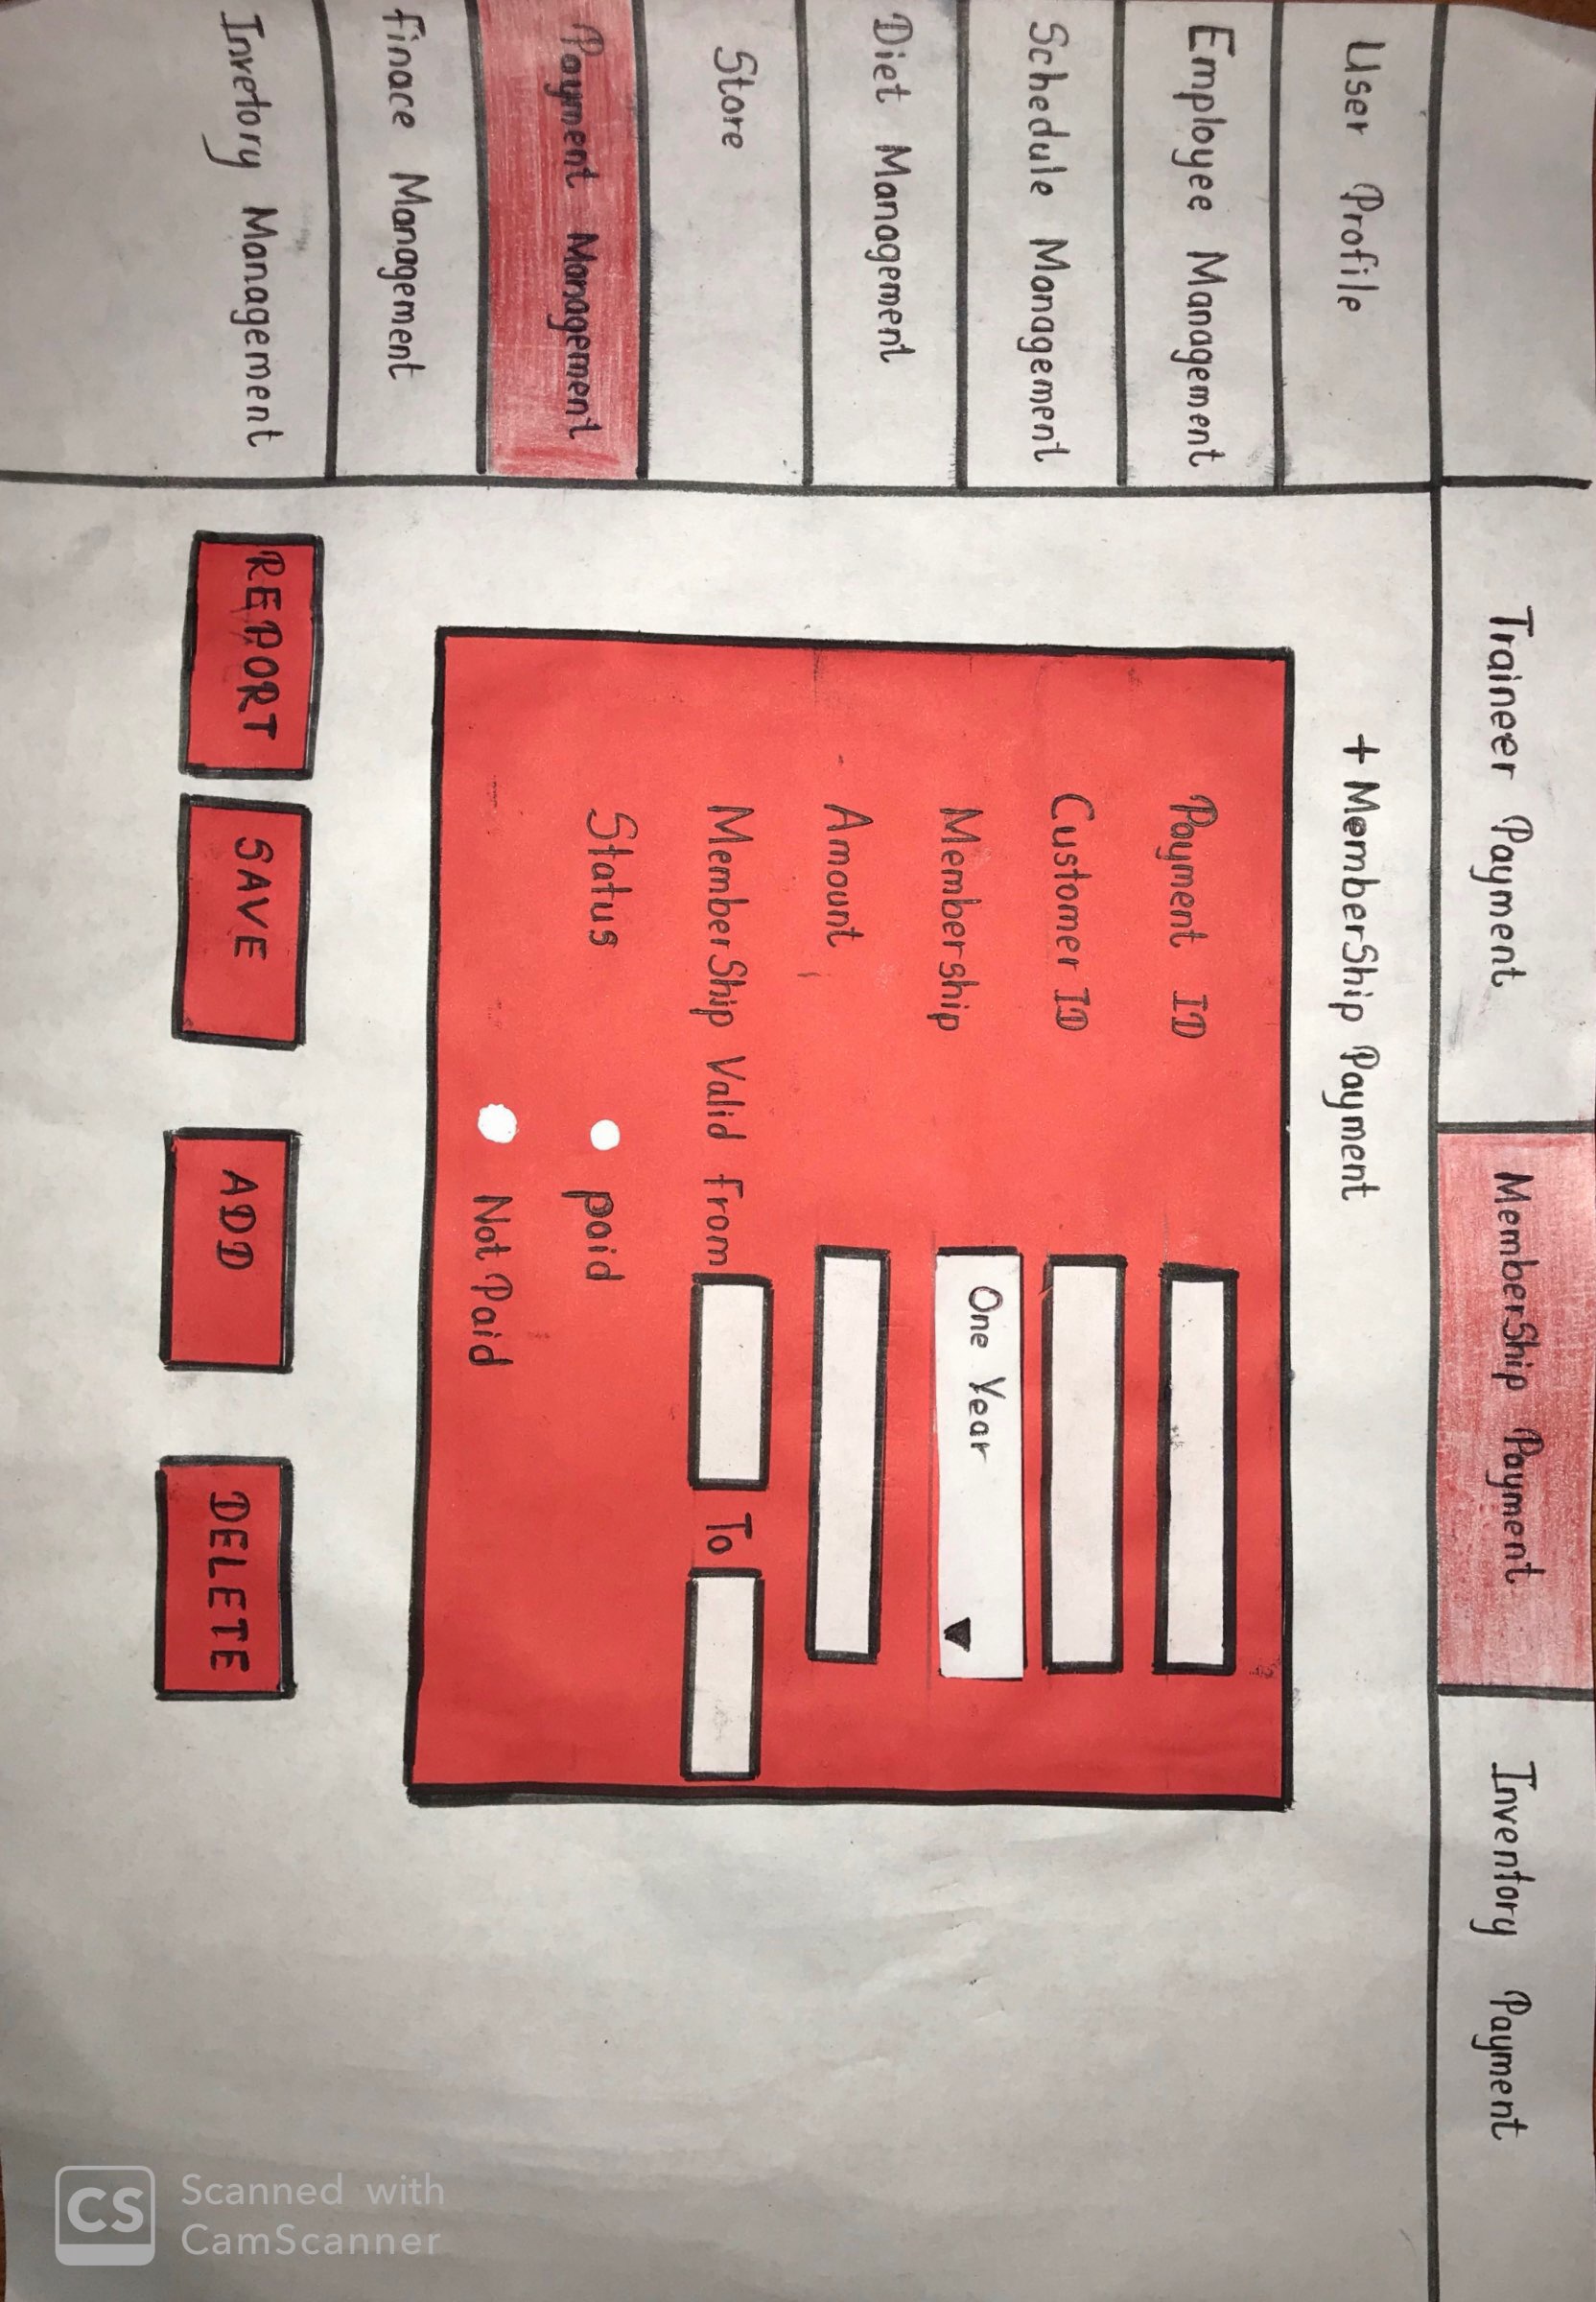 Traineer Payment
MemberShip Payment
Inventory Payment
User Profile
Employee Management
Schedule Management
Diet Management
Store
Payment Management
Finace Management
Invetory Management
+ MemberShip Payment
Payment ID
Customer ID
Membership
One Year
Amount
MemberShip Valid From
To
Status
paid
Not Paid
REPORT
SAVE
ADD
DELETE
Scanned with
CamScanner
CS